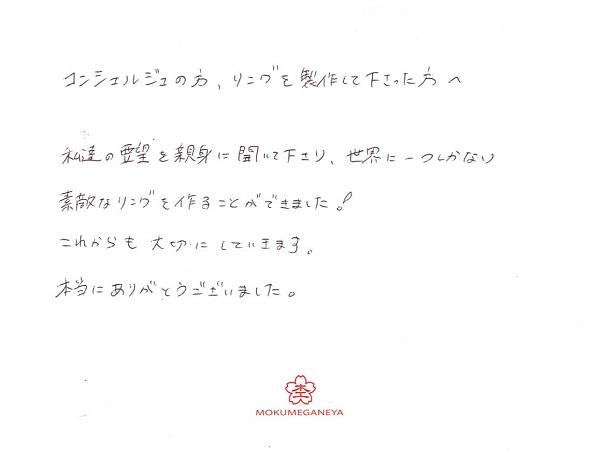 コンシェルジュの方、リングを製作して下さった方へ
私達の要望を親身に聞いて下さり、世界に一つしかない
素敵なリングを作ることができました!
これからも大切にしていきます。
本当にありがとうございました。
MOKUMEGANEYA